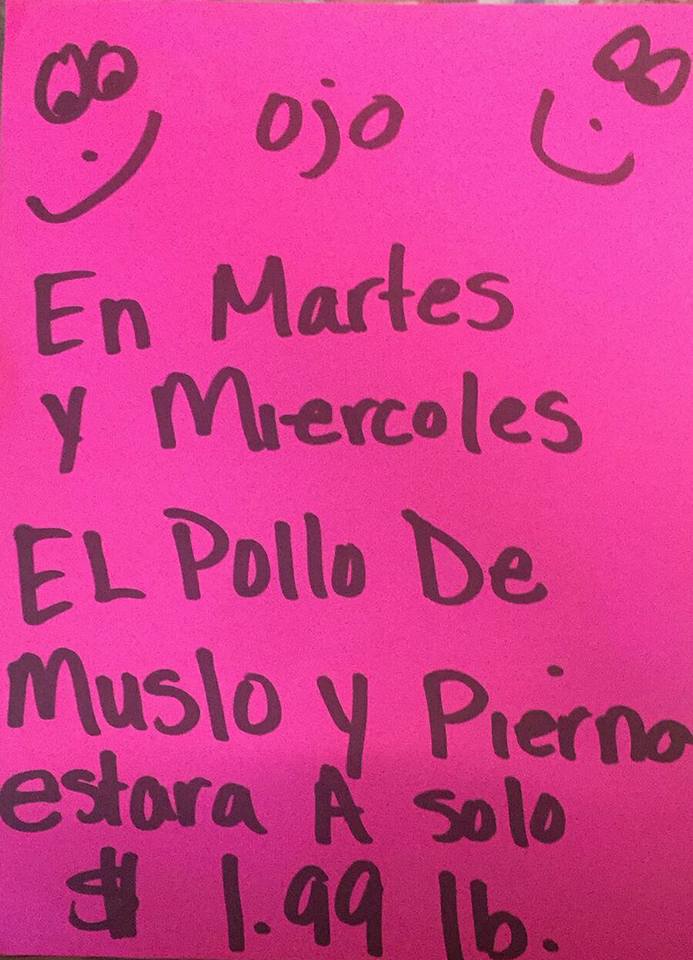 ojo
En Martes
y Miercoles
EL Pollo De
Muslo y Pierna
estara A solo
$ 1.99 lb.